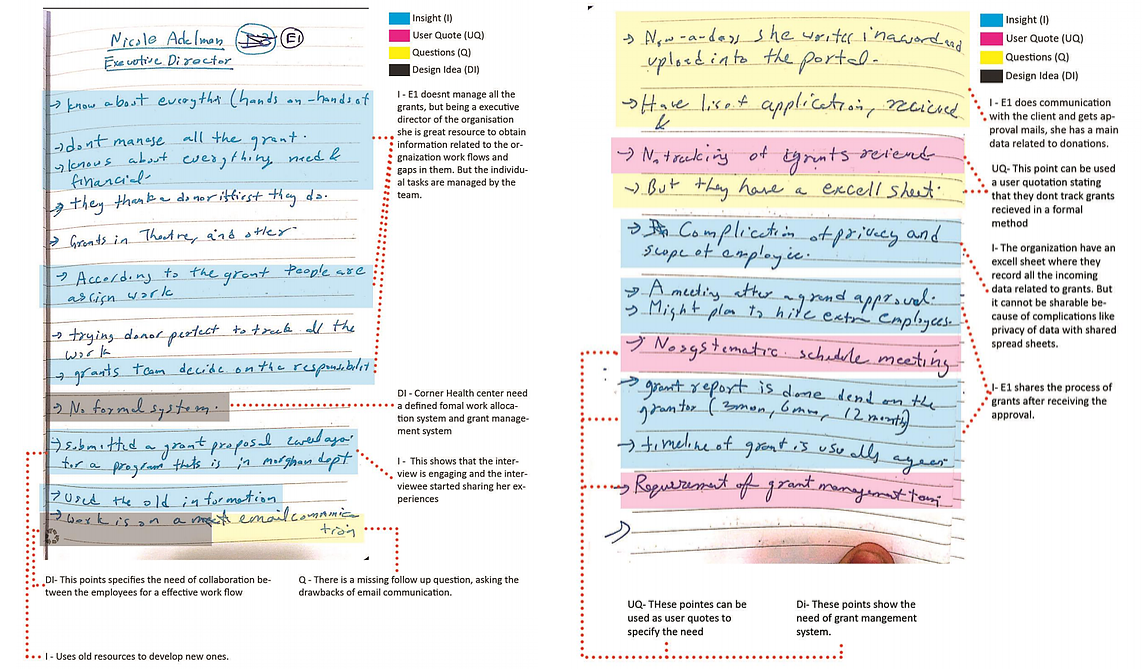 Nicole Adelman
E1
Executive Director
→ know about everything (hands on-hands of
→ dont manage all the grant.
→ knows about everything need &
financial.
→ they thank a donor first they do.
→ Grants in Theatre, and other
→ According to the grant People are
assign work
→ trying donor perfect to track all the
work
→ grants team decide on the responsibilit
→ No formal system.
→ Submitted a grant proposal
for a program thats is in dept
→ Used the old information
→ work is on a email communica
tion
Insight (I)
User Quote (UQ)
Questions (Q)
Design Idea (DI)
I - E1 doesnt manage all the
grants, but being a executive
director of the organisation
she is great resource to obtain
information related to the or-
gnaization work flows and
gaps in them. But the individu-
al tasks are managed by the
team.
DI - Corner Health center need
a defined fomal work alloca-
tion system and grant manage-
ment system
I - This shows that the inter-
view is engaging and the inter-
viewee started sharing her ex-
periences
DI- This points specifies the need of collaboration be-
tween the employees for a effective work flow
Q - There is a missing follow up question, asking the
drawbacks of email communication.
I - Uses old resources to develop new ones.
→ Now-a-days she writes in a word and
upload into the portal.
→ Have list of application, recieved
&
→ No tracking of grants reciend
→ But they have a excell sheet.
→ Complication of privecy and
scope of employee.
→ A meeting after a grand approval.
→ Might plan to hire extra employees.
→ No systematic schedule meeting
→ grant report is done dend on the
grantor (3mon, 6mon, 12 month)
→ timeline of grant is usually
→ Requirement of grant management
Insight (I)
User Quote (UQ)
Questions (Q)
Design Idea (DI)
I - E1 does communication
with the client and gets ap-
proval mails, she has a main
data related to donations.
UQ- This point can be used
a user quotation stating
that they dont track grants
recieved in a formal
method
I- The organization have an
excell sheet where they
record all the incoming
data related to grants. But
it cannot be sharable be-
cause of complications like
privacy of data with shared
spread sheets.
I- E1 shares the process of
grants after receiving the
approval.
UQ- THese pointes can be
used as user quotes to
specify the need
Di- These points show the
need of grant mangement
system.